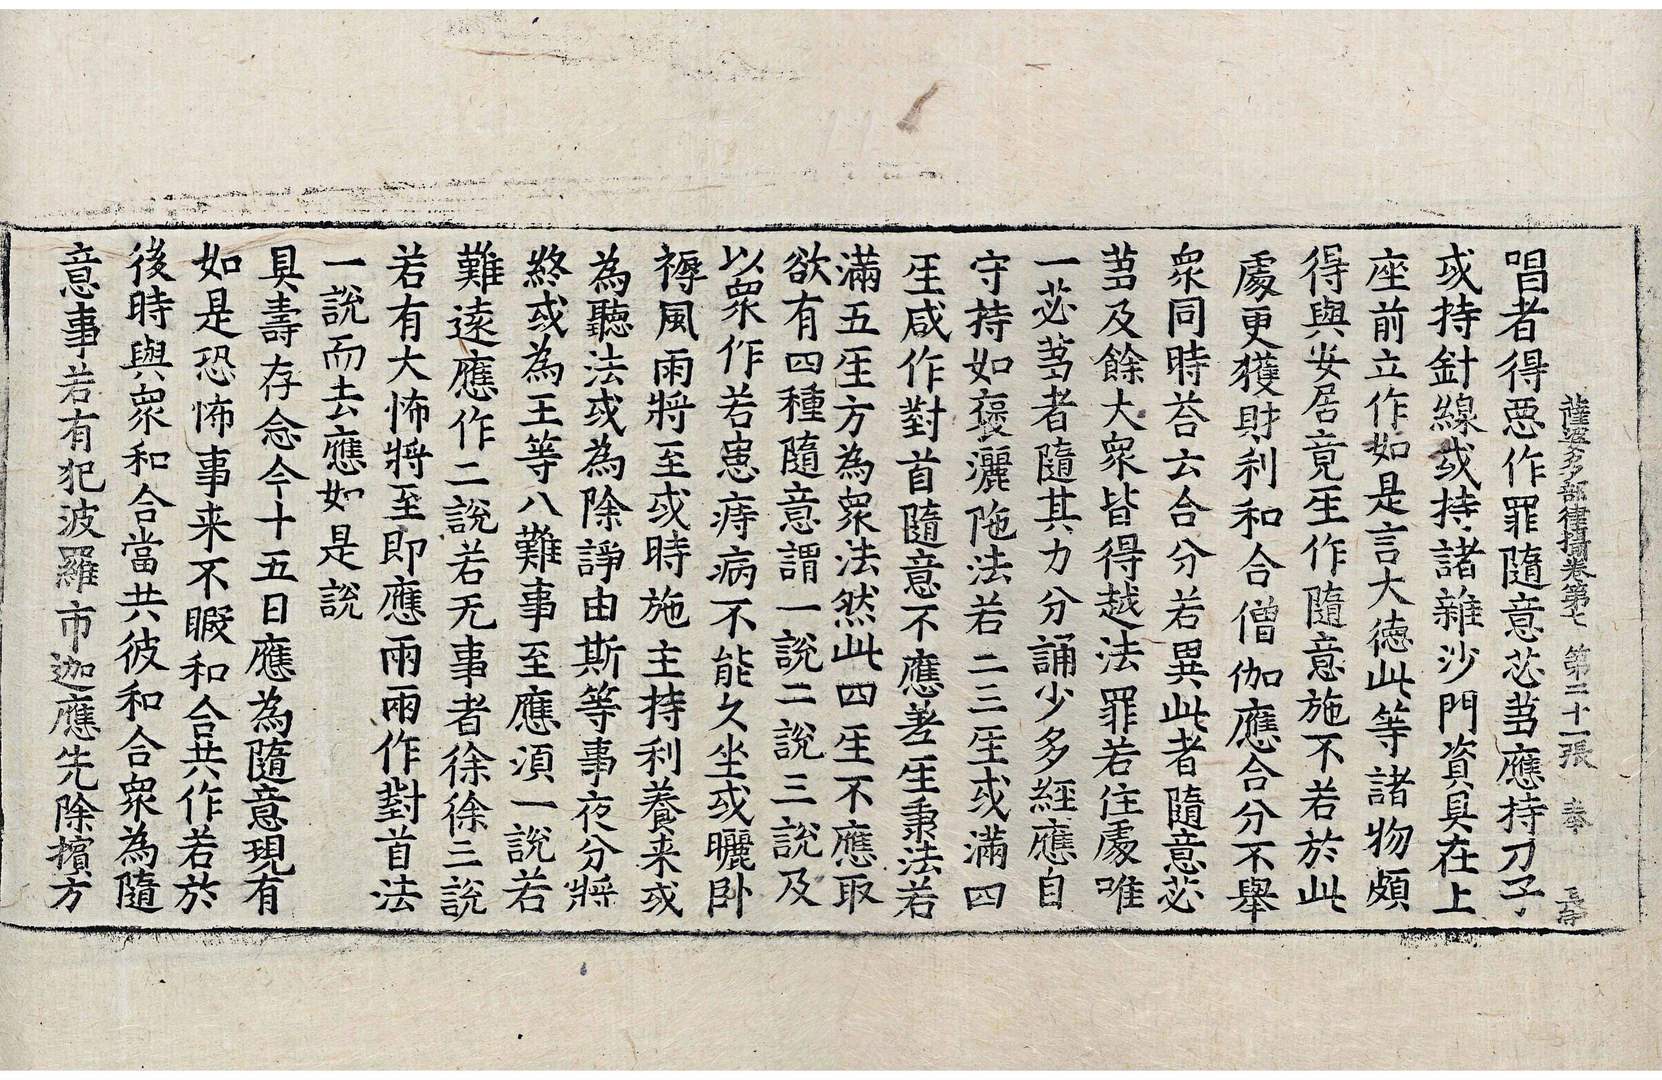 薩婆多部律攝卷第七 第二十一張 奉
唱者得惡作罪隨意苾蒭應持刀子
或持針線或持諸雜沙門資具在上
座前立作如是言大德此等諸物頗
得與安居竟㞢作隨意施不若於此
處更獲財利和合僧伽應合分不舉
衆同時荅云合分若異此者隨意苾
蒭及餘大衆皆得越法罪若住處唯
一苾蒭者隨其力分誦少多經應自
守持如襃灑陁法若二三㞢或滿四
㞢咸作對首隨意不應差㞢秉法若
滿五㞢方為衆法然此四㞢不應取
欲有四種隨意謂一說二說三說及
以衆作若患痔病不能久坐或曬卧
褥風雨將至或時施主持利養来或
為聽法或為除諍由斯等事夜分將
終或為王等八難事至應湏一說若
難遠應作二說若无事者徐徐三說
若有大怖將至即應兩兩作對首法
一說而去應如是說
具壽存念今十五日應為隨意現有
如是恐怖事来不暇和合共作若於
後時與衆和合當共彼和合衆為隨
意事若有犯波羅市迦應先除擯方